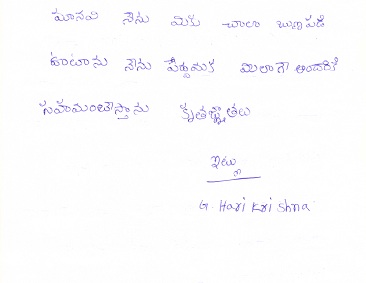 మానవి నేను మీకు చాలా ఋణపడి
వుంటాను నేను పెద్దమక మీలాగే అందరికి
సహయంచేస్తాను కృతజ్ఞతలు
ఇట్లు
G. Hari Krishna